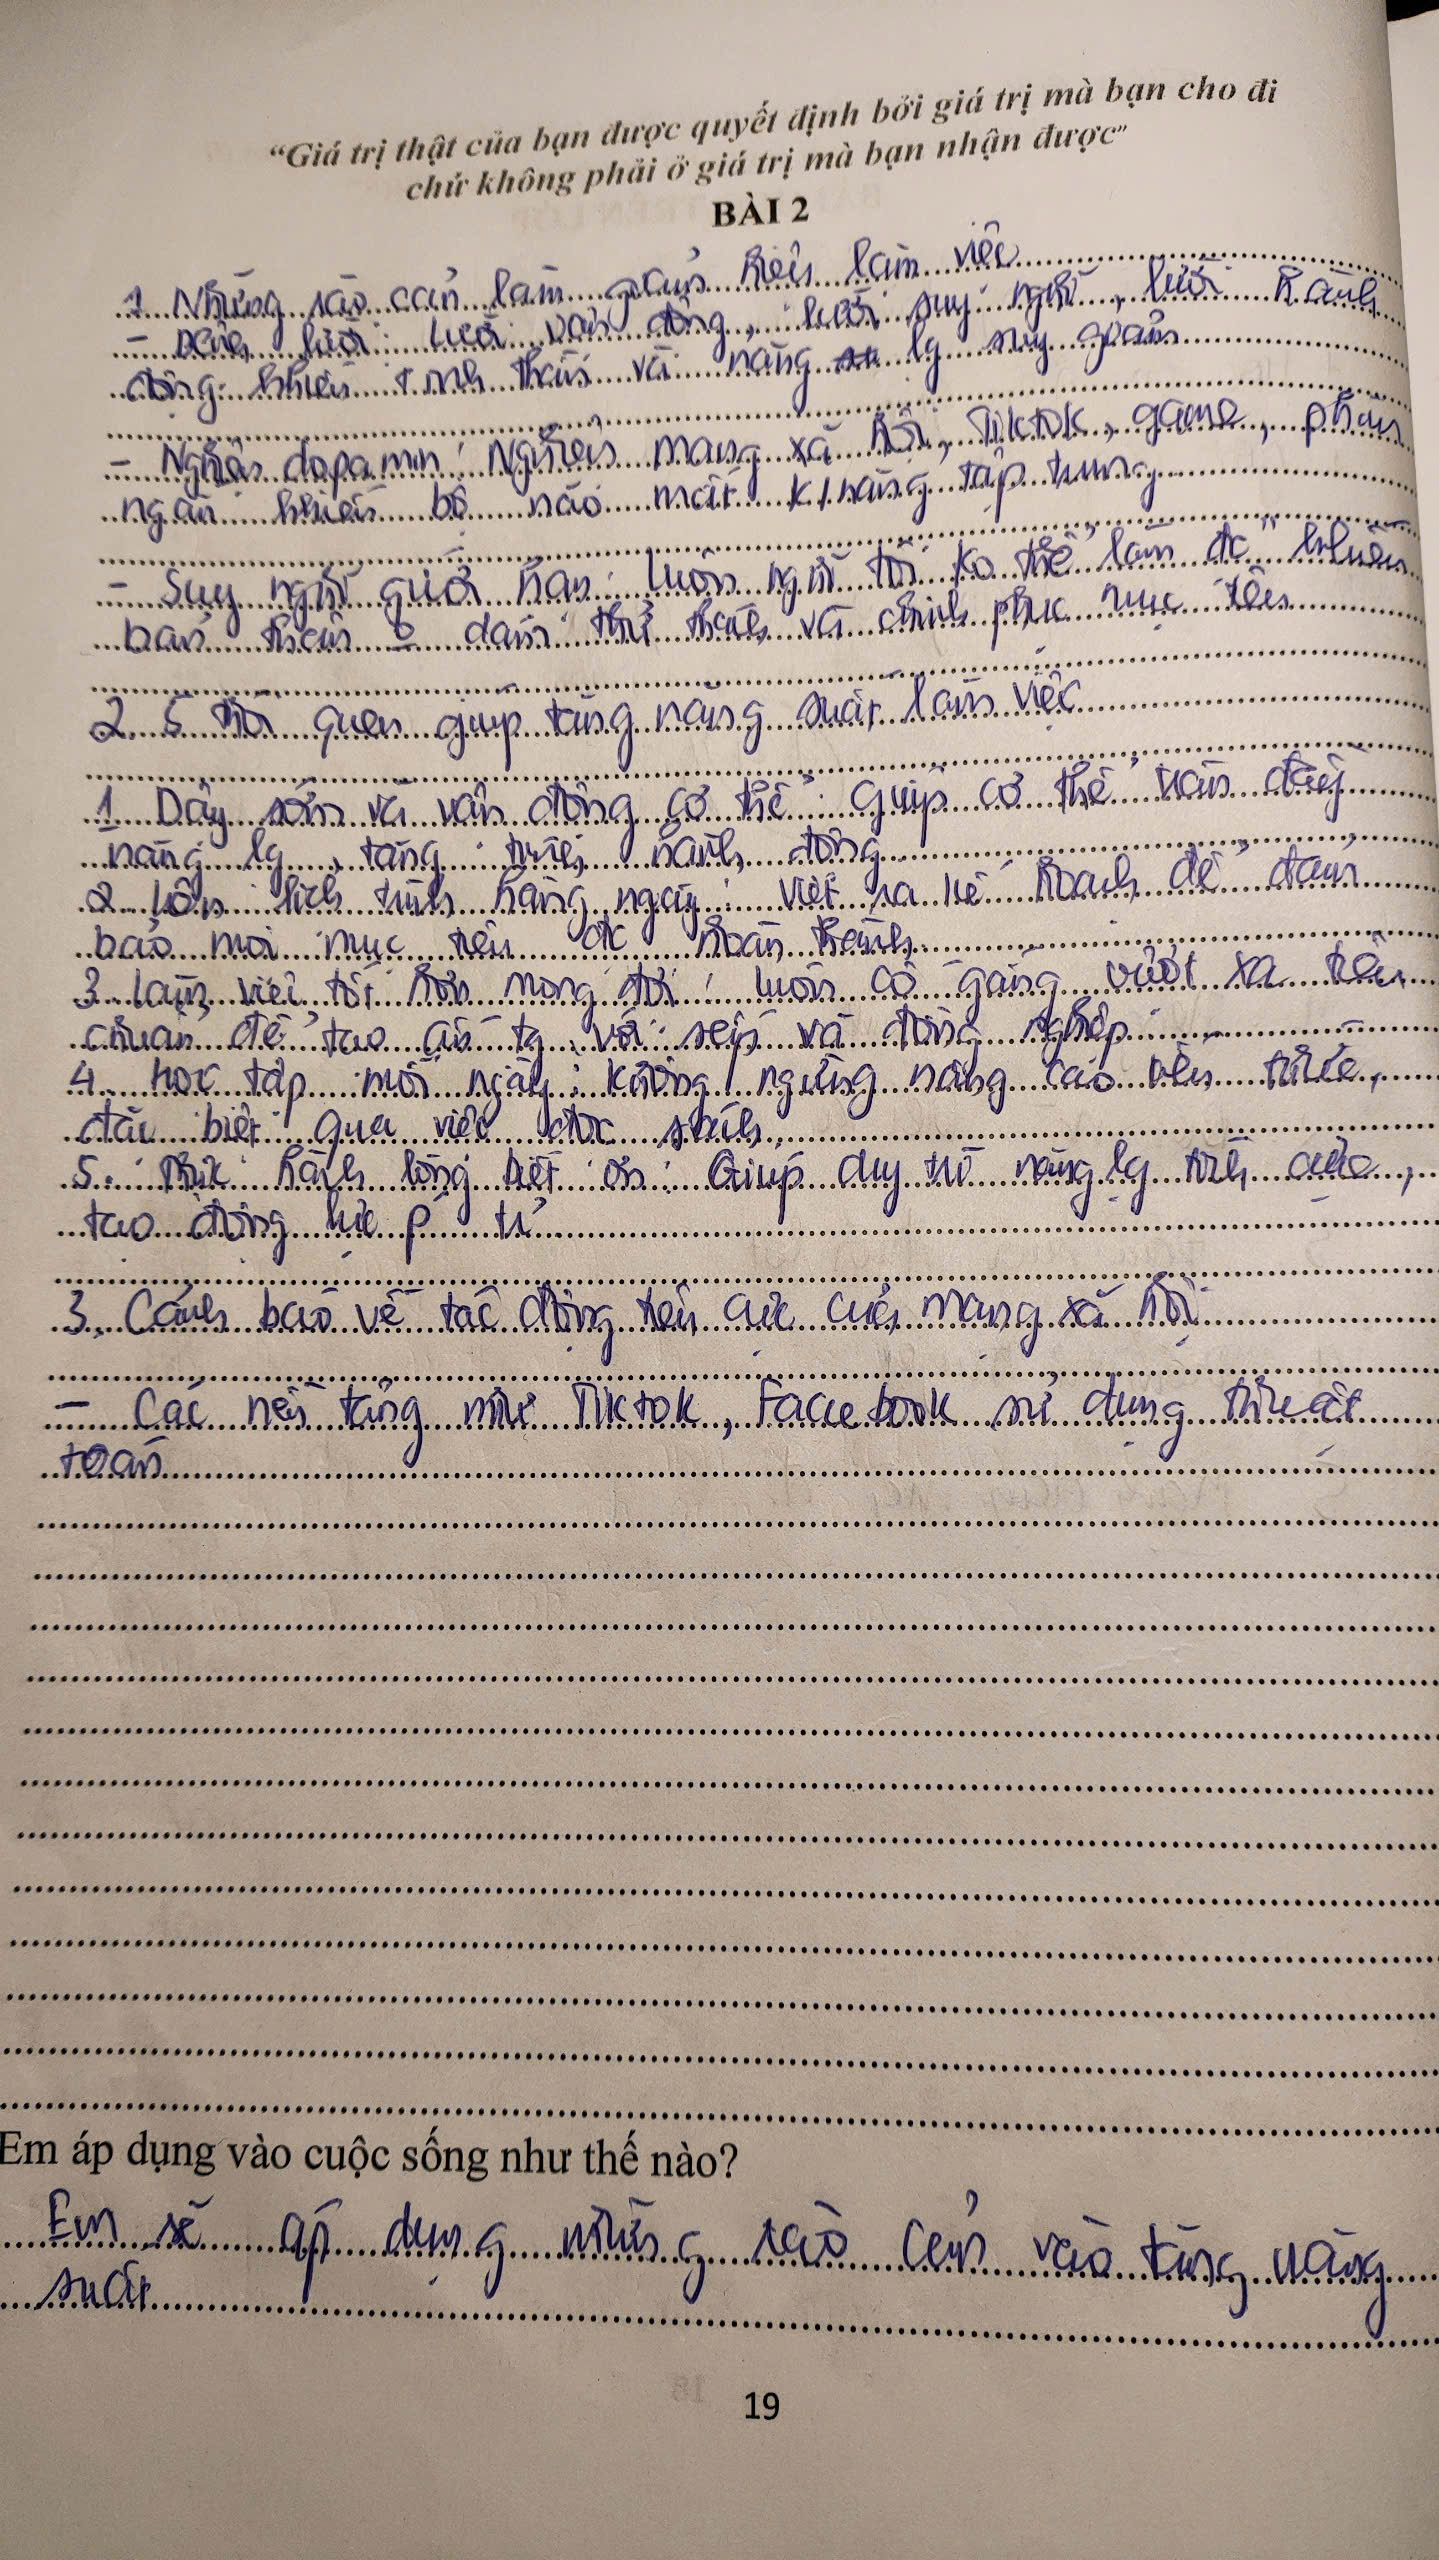 “Giá trị thật của bạn được quyết định bởi giá trị mà bạn cho đi
chứ không phải ở giá trị mà bạn nhận được”
BÀI 2
1. Những rào cản làm giảm hiệu làm việc
- lười: lười vận động, lười suy nghĩ, lười hành
động: khiến tinh thần và năng lg suy giảm
- Nghiện dopamin: Nghiện mạng xã hội, Tiktok, game, phim
ngắn khiến bộ não mất k/năng tập trung
- Suy nghĩ giới hạn: luôn nghĩ "tôi ko thể làm đc" khiến
bản thân o dám thử thách và chinh phục mục tiêu
2. 5 thói quen giúp tăng năng suất làm việc
1. Dậy sớm và vận động cơ thể: Giúp cơ thể tràn đầy
năng lg, tăng hành động
2. Lên lịch trình hàng ngày: viết ra kế hoạch để đảm
bảo mọi mục tiêu đc hoàn thành
3. Làm việc tốt hơn mong đợi: luôn cố gắng vượt xa tiêu
chuẩn để tạo ấn tg với sếp và đồng nghiệp
4. học tập mỗi ngày: không ngừng nâng cao kiến thức,
đặc biệt qua việc đọc sách
5. Thực hành lòng biết ơn: Giúp duy trì năng lg tích cực,
tạo động lực p tr
3. Cảnh báo về tác động tiêu cực của mạng xã hội
- Các nền tảng như Tiktok, Facebook sử dụng thuật
toán
Em áp dụng vào cuộc sống như thế nào?
Em sẽ áp dụng những rào cản vào tăng năng
suất
19